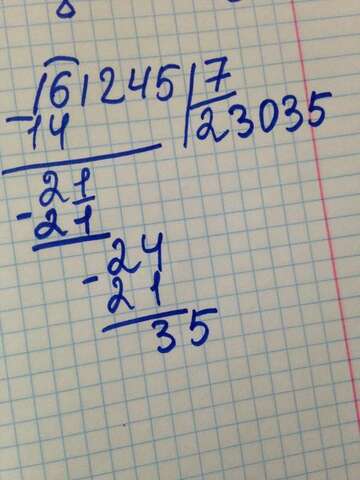 161245 7
-14 23035
21
-21
24
-21
35